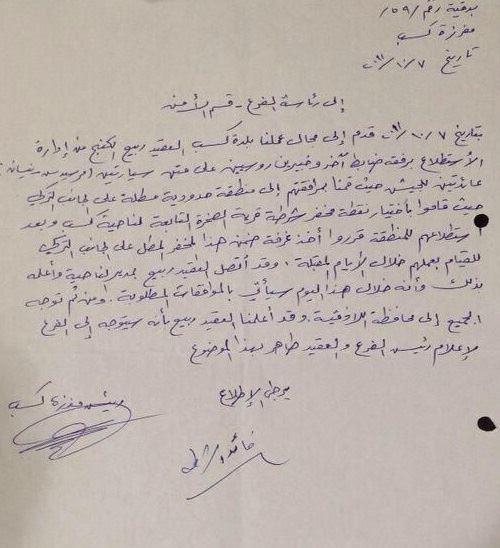 برقية رقم /١٥٩/
مفرزة كسب
تاريخ ٧/١٠/
إلى رئاسة الفرع - قسم الأمن
بتاريخ ٧/١٠/ قدم إلى مجال عملنا بلدة كسب العقيد ربيع من إدارة
الاستطلاع برفقة ضابط آخر وخبيرين روسيين على متن سيارتين
عائدتين للجيش حيث قمنا بمرافقتهم إلى منطقة حدودية مطلة على الجانب التركي
حيث قاموا باختيار نقطة مخفر شرطة قرية الصخرة التابعة لناحية كسب وبعد
استطلاعهم للمنطقة قرروا أخذ غرفة ضمن هذا المخفر المطل على الجانب التركي
للقيام بعملهم خلال الأيام المقبلة. وقد أتصل العقيد ربيع بمدير الناحية وأعلمه
بذلك وأنه خلال هذا اليوم سيأتي بالموافقات المطلوبة. ومن ثم توجه
الجميع إلى محافظة اللاذقية. وقد أعلمنا العقيد ربيع بأنه سيتوجه إلى الفرع
لإعلام رئيس الفرع والعقيد طاهر بهذا الموضوع
يرجى الإطلاع
مفرزة كسب